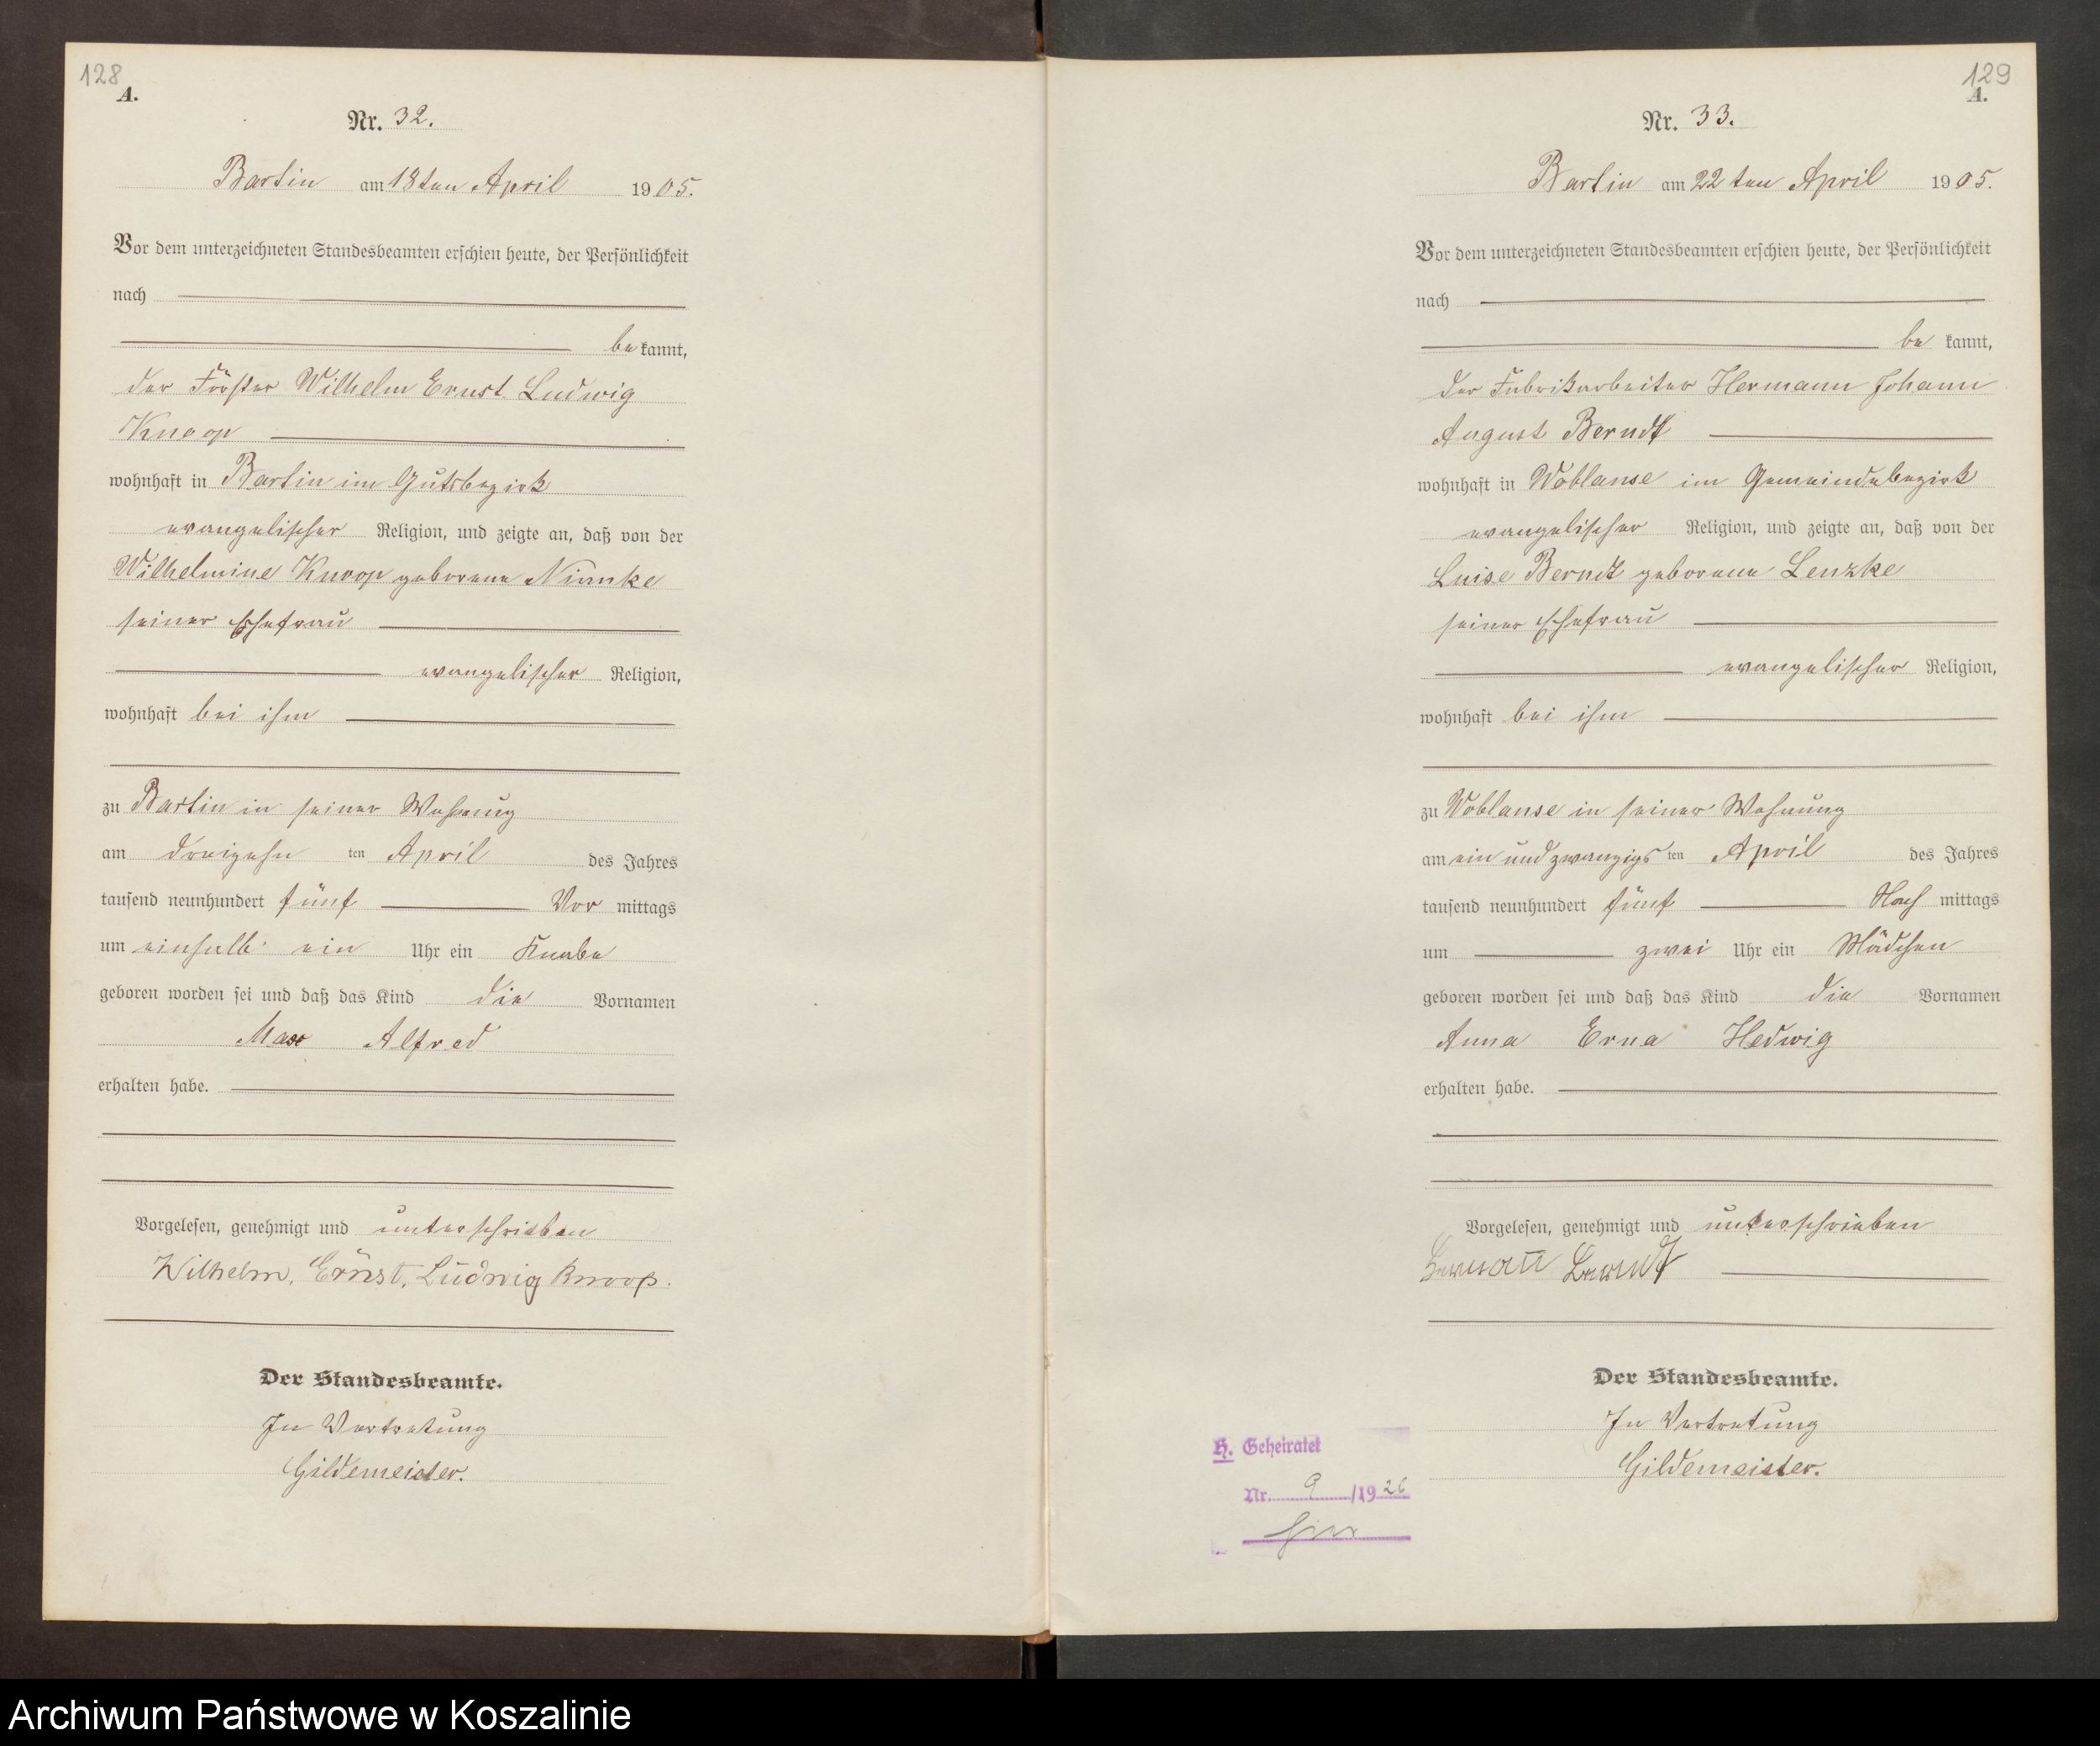 128
A.
Nr. 32.
Bartin am 18ten April 1905.
Vor dem unterzeichneten Standesbeamten erschien heute, der Persönlichkeit
nach
bekannt,
der Förster Wilhelm Ernst Ludwig
Knoop
wohnhaft in Bartin im Gutsbezirk
evangelischer Religion, und zeigte an, daß von der
Wilhelmine Knoop geborene Niemke
seiner Ehefrau
evangelischer Religion,
wohnhaft bei ihm
zu Bartin in seiner Wohnung
am dreizehn ten April des Jahres
tausend neunhundert fünf Vor mittags
um einhalb ein Uhr ein Knabe
geboren worden sei und daß das Kind die Vornamen
Max Alfred
erhalten habe.
Vorgelesen, genehmigt und unterschrieben
Wilhelm, Ernst, Ludwig Knoop.
Der Standesbeamte.
In Vertretung
Gildemeister.
129
A.
Nr. 33.
Bartin am 22ten April 1905.
Vor dem unterzeichneten Standesbeamten erschien heute, der Persönlichkeit
nach
be kannt,
der Fabrikarbeiter Hermann Johann
August Berndt
wohnhaft in Woblanse im Gemeindebezirk
evangelischer Religion, und zeigte an, daß von der
Luise Berndt geborene Lenzke
seiner Ehefrau
evangelischer Religion,
wohnhaft bei ihm
zu Woblanse in seiner Wohnung
am ein und zwanzigsten April des Jahres
tausend neunhundert fünf Nach mittags
um zwei Uhr ein Mädchen
geboren worden sei und daß das Kind die Vornamen
Anna Erna Hedwig
erhalten habe.
Vorgelesen, genehmigt und unterschrieben
Der Standesbeamte.
In Vertretung
Gildemeister.
H. Geheiratet
Nr. 9 /1926
Archiwum Państwowe w Koszalinie